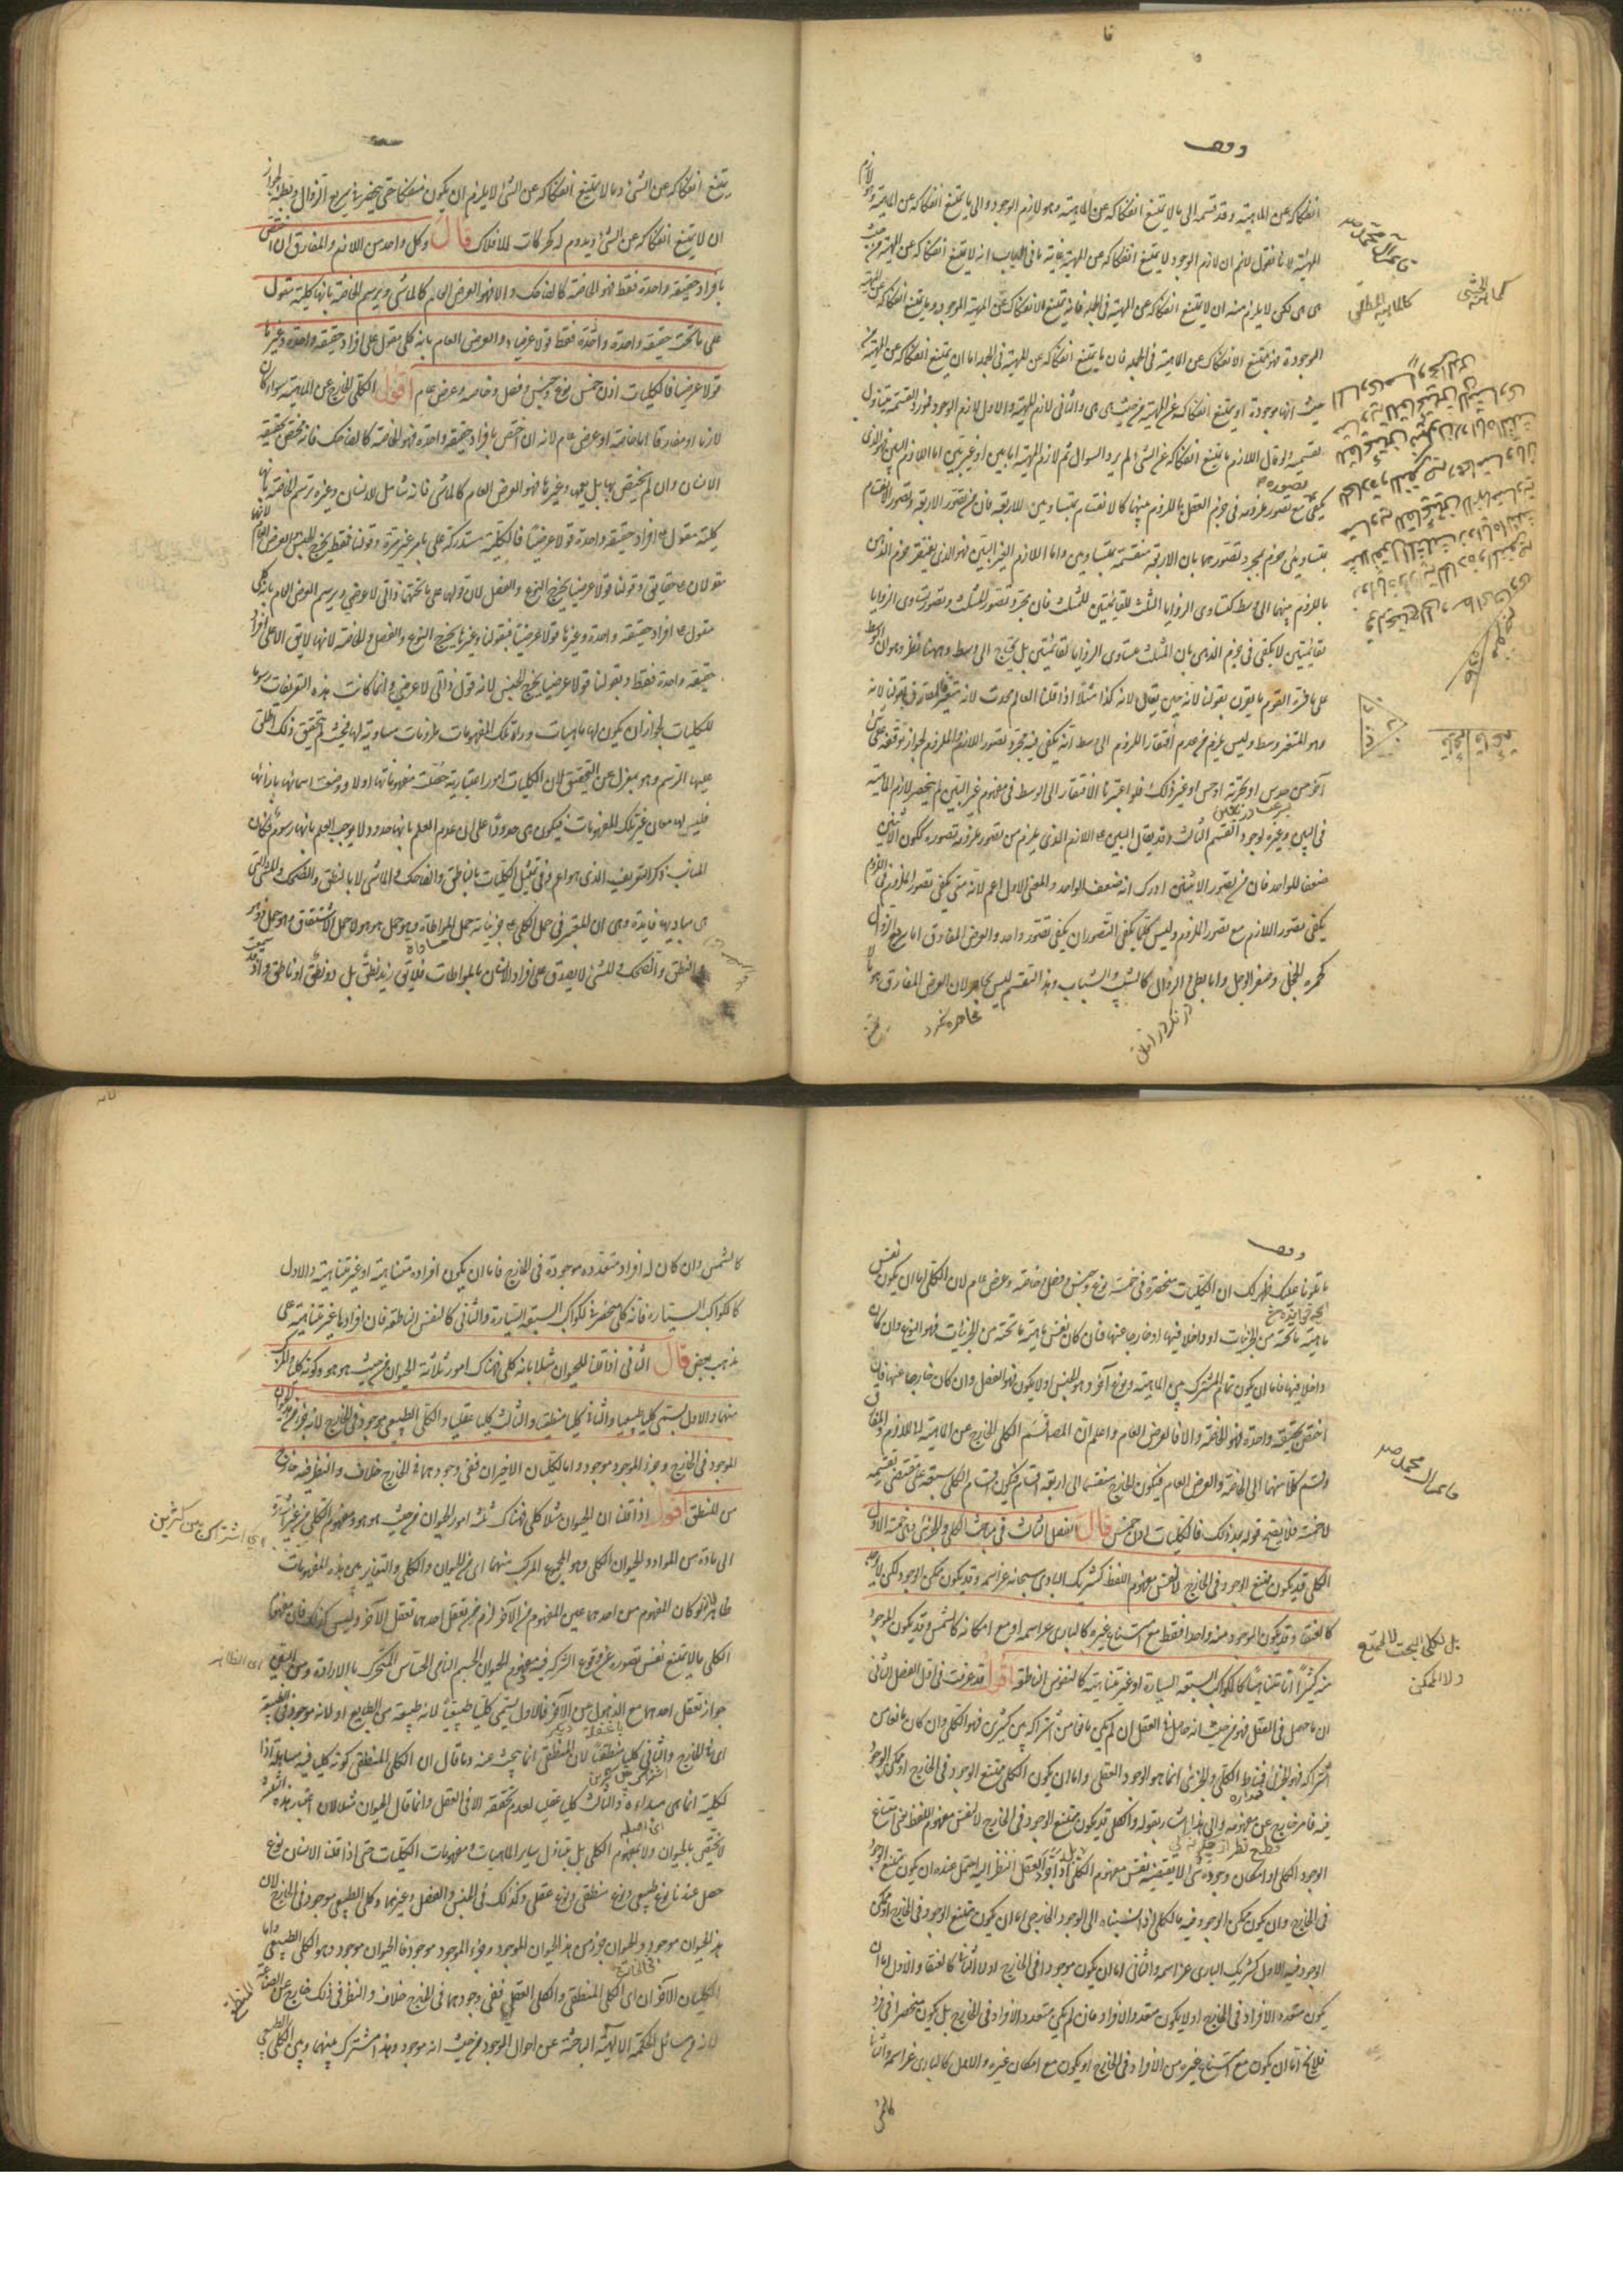 وقف
انفكاكه عن الماهية وقد قسمه الى ما لا يمتنع انفكاكه عن الماهية وهو لازم الوجود والى ما يمتنع انفكاكه عن الماهية وهو لازم
المهية لانا نقول لا نم ان لازم الوجود لا يمتنع انفكاكه عن المهية غاية ما في الباب انه لا يمتنع انفكاكه عن المهية من حيث
هي هي لكن لا يلزم منه ان لا يمتنع انفكاكه عن المهية في الجملة فانه يمتنع الانفكاك عن المهية الموجودة وما يمتنع انفكاكه عن المهية
الموجودة فهو ممتنع الانفكاك عن الماهية في الجملة فان ما يمتنع انفكاكه عن المهية في الجملة اما ان يمتنع انفكاكه عن المهية من
حيث انها موجودة او يمتنع انفكاكه عن المهية من حيث هي هي والثاني لازم المهية والاول لازم الوجود فمورد القسمة متناول
لقسميه ولو قال اللازم ما يمتنع انفكاكه عن الشئ لم يرد السوال ثم لازم المهية اما بين او غير بين اما اللازم البين فهو الذي
يكفي تصوره مع تصور ملزومه في جزم العقل باللزوم بينهما كالانقسام بمتساويين للاربعة فان من تصور الاربعة وتصور الانقسام
بمتساويين جزم بمجرد تصورهما بان الاربعة منقسمة بمتساويين واما اللازم الغير البين فهو الذي يفتقر جزم الذهن
باللزوم بينهما الى وسط كتساوي الزوايا الثلث للقائمتين للمثلث فان مجرد تصور المثلث وتصور تساوي الزوايا
لقائمتين لا يكفي في جزم الذهن بان المثلث متساوي الزوايا لقائمتين بل يحتاج الى وسط وههنا نظر وهو ان الوسط
على ما فسره القوم ما يقرن بقولنا لانه حين يقال لانه كذا مثلا اذا قلنا العالم محدث لانه متغير فالمقارن بقولنا لانه
وهو المتغير وسط وليس يلزم من عدم افتقار اللزوم الى وسط انه يكفي فيه مجرد تصور اللازم والملزوم لجواز توقفه على شئ
آخر من حدس او تجربة او حس او غير ذلك فلو اعتبرنا الافتقار الى الوسط في مفهوم غير البين لم ينحصر لازم الماهية
في البين وغيره لوجود القسم الثالث وقد يقال البين على اللازم الذي يلزم من تصور ملزومه تصوره ككون الاثنين
ضعفا للواحد فان من تصور الاثنين ادرك انه ضعف الواحد والمعنى الاول اعم لانه متى يكفي تصور الملزوم في اللزوم
يكفي تصور اللازم مع تصور الملزوم وليس كلما يكفي التصوران يكفي تصور واحد والعرض المفارق اما سريع الزوال
كحمرة الخجل وصفرة الوجل واما بطئ الزوال كالشيب والشباب وهذا التقسيم ليس بحاصر لان العرض المفارق هو ما لا
يمتنع انفكاكه عن الشئ وما لا يمتنع انفكاكه عن الشئ لا يلزم ان يكون منفكا حتى ينحصر في سريع الزوال وبطيئه لجواز
ان لا يمتنع انفكاكه عن الشئ ويدوم له كحركات الافلاك قال وكل واحد من اللازم والمفارق ان اختص
بافراد حقيقة واحدة فقط فهو الخاصة كالضاحك والا فهو العرض العام كالماشي وترسم الخاصة بانها كلية مقولة
على ما تحت حقيقة واحدة فقط قولا عرضيا والعرض العام بانه كلي مقول على افراد حقيقة واحدة وغيرها
قولا عرضيا فالكليات اذن خمس نوع وجنس وفصل وخاصة وعرض عام اقول الكلي الخارج عن الماهية سواء كان
لازما او مفارقا اما خاصة او عرض عام لانه ان اختص بافراد حقيقة واحدة فهو الخاصة كالضاحك فانه مختص بحقيقة
الانسان وان لم يختص بها بل يعمها وغيرها فهو العرض العام كالماشي فانه شامل للانسان وغيره وترسم الخاصة بانها
كلية مقولة على افراد حقيقة واحدة قولا عرضيا فالكلية مستدركة على ما مر غير مرة وقولنا فقط يخرج الجنس والعرض العام لانهما
مقولان على حقائق وقولنا قولا عرضيا يخرج النوع والفصل لان قولهما على ما تحتهما ذاتي لا عرضي ويرسم العرض العام بانه كلي
مقول على افراد حقيقة واحدة وغيرها قولا عرضيا فبقولنا وغيرها يخرج النوع والفصل والخاصة لانها لا تق الا على افراد
حقيقة واحدة فقط وبقولنا قولا عرضيا يخرج الجنس لانه قول ذاتي لا عرضي وانما كانت هذه التعريفات رسوما
للكليات لجواز ان يكون لها ماهيات وراء تلك المفهومات ملزومات مساوية لها فحيث لم يتحقق ذلك اطلق
عليها الرسم وهو بمعزل عن التحقيق لان الكليات امور اعتبارية حصلت مفهوماتها اولا ووضعت اسمائها بازائها
فليس لها معان غير تلك المفهومات فيكون هي حدودا على ان عدم العلم بانها حدود لا يوجب العلم بانها رسوم فكان
المناسب ذكر التعريف الذي هو اعم وفي تمثيل الكليات بالناطق والضاحك والماشي لا بالنطق والضحك والمشي التي
هي مباديها فايدة وهي ان المعتبر في حمل الكلي على جزئياته حمل المواطاة وهو حمل هو هو لا حمل الاشتقاق وهو حمل ذو هو
والنطق والضحك والمشي لا يصدق على افراد الانسان بالمواطات فلا يق زيد نطق بل ذو نطق او ناطق واذ قد سمعت
وقف
ما تلونا عليك ظهر لك ان الكليات منحصرة في خمسة نوع وجنس وفصل وخاصة وعرض عام لان الكلي اما ان يكون نفس
ماهية ما تحته من الجزئيات او داخلا فيها او خارجا عنها فان كان نفس ماهية ما تحته من الجزئيات فهو النوع وان كان
داخلا فيها فاما ان يكون تمام المشترك بين الماهية ونوع آخر وهو الجنس او لا يكون فهو الفصل وان كان خارجا عنها فان
اختص بحقيقة واحدة فهو الخاصة والا فالعرض العام واعلم ان المصنف قسم الكلي الخارج عن الماهية الى اللازم والمفارق
وقسم كلا منهما الى الخاصة والعرض العام فيكون الخارج منقسما الى اربعة اقسام فيكون اقسام الكلي سبعة على مقتضى تقسيمه
لا خمسة فلا يصح قوله بعد ذلك فالكليات اذن خمس قال الفصل الثالث في مباحث الكلي والجزئي وهي خمسة الاول
الكلي قد يكون ممتنع الوجود في الخارج لا لنفس مفهوم اللفظ كشريك الباري سبحانه عز اسمه وقد يكون ممكن الوجود لكن لا يوجد
كالعنقا وقد يكون الموجود منه واحدا فقط مع امتناع غيره كالباري عز اسمه او مع امكانه كالشمس وقد يكون الموجود
منه كثيرا اما متناهيا كالكواكب السبعة السيارة او غير متناهية كالنفوس الناطقة اقول قد عرفت في اول الفصل الثاني
ان ما حصل في العقل فهو من حيث انه حاصل في العقل ان لم يكن مانعا من اشتراكه بين كثيرين فهو الكلي وان كان مانعا من
اشتراكه فهو الجزئي فمناط الكلي والجزئي انما هو الوجود العقلي واما ان يكون الكلي ممتنع الوجود في الخارج او ممكن الوجود
فيه فامر خارج عن مفهومه والى هذا اشار بقوله والكلي قد يكون ممتنع الوجود في الخارج لا لنفس مفهوم اللفظ يعني امتناع
الوجود الكلي او امكان وجوده شئ لا يقتضيه نفس مفهوم الكلي بل اذا جرد العقل النظر اليه احتمل عنده ان يكون ممتنع الوجود
في الخارج وان يكون ممكن الوجود فيه فالكلي اذا نسبناه الى الوجود الخارجي اما ان يكون ممتنع الوجود في الخارج او ممكن
الوجود فيه الاول كشريك الباري عز اسمه والثاني اما ان يكون موجودا في الخارج اولا الثاني كالعنقا والاول اما ان
يكون متعدد الافراد في الخارج او لا يكون متعدد الافراد فان لم يكن متعدد الافراد في الخارج بل يكون منحصرا في فرد
فلا يخ اما ان يكون مع امتناع غيره من الافراد في الخارج او يكون مع امكان غيره والاول كالباري عز اسمه والثاني
كالشمس
كالشمس وان كان له افراد متعددة موجودة في الخارج فاما ان يكون افراده متناهية او غير متناهية والاول
كالكواكب السيارة فانه كلي منحصر في الكواكب السبعة السيارة والثاني كالنفس الناطقة فان افرادها غير متناهية على
مذهب بعض قال الثاني اذا قلنا للحيوان مثلا بانه كلي فهناك امور ثلاثة الحيوان من حيث هو هو وكونه كليا والمركب
منهما والاول يسمى كليا طبيعيا والثاني كليا منطقيا والثالث كليا عقليا والكلي الطبيعي موجود في الخارج لانه جزء من هذا الحيوان
الموجود في الخارج وجزء الموجود موجود واما الكليان الاخيران ففي وجودهما في الخارج خلاف والنظر فيه خارج
من المنطق اقول اذا قلنا ان الحيوان مثلا كلي فهناك ثلثة امور الحيوان من حيث هو هو ومفهوم الكلي من غير اشارة
الى مادة من المواد والحيوان الكلي وهو المجموع المركب منهما اي من الحيوان والكلي والتغاير بين هذه المفهومات
ظاهر فانه لو كان المفهوم من احدهما عين المفهوم من الآخر لزم من تعقل احدهما تعقل الآخر وليس كذلك فان مفهوم
الكلي ما لا يمتنع نفس تصوره عن وقوع الشركة فيه ومفهوم الحيوان الجسم النامي الحساس المتحرك بالارادة ومن البين
جواز تعقل احدهما مع الذهول عن الآخر فالاول يسمى كليا طبيعيا لانه طبيعة من الطبايع او لانه موجود في الطبيعة
اي في الخارج والثاني كليا منطقيا لان المنطقي انما يبحث عنه وما قال ان الكلي المنطقي كونه كليا فيه مساهلة اذ
الكلية انما هي مبدأه والثالث كليا عقليا لعدم تحققه الا في العقل وانما قال الحيوان مثلا لان اعتبار هذه الثلثة
لا يختص بالحيوان ولا بمفهوم الكلي بل يتناول ساير الماهيات ومفهومات الكليات حتى اذا قلنا الانسان نوع
حصل عندنا نوع طبيعي ونوع منطقي ونوع عقلي وكذلك في الجنس والفصل وغيرهما وكلي الطبيعي موجود في الخارج لان
هذا الحيوان موجود والحيوان جزء من هذا الحيوان الموجود وجزء الموجود موجود فالحيوان موجود وهو الكلي الطبيعي واما
الكليان الآخران اي الكلي المنطقي والكلي العقلي ففي وجودهما في الخارج خلاف والنظر في ذلك خارج عن الصناعة
لانه من مسائل الحكمة الالهية الباحثة عن احوال الموجود من حيث انه موجود وهذا مشترك بينهما وبين الكلي الطبيعي